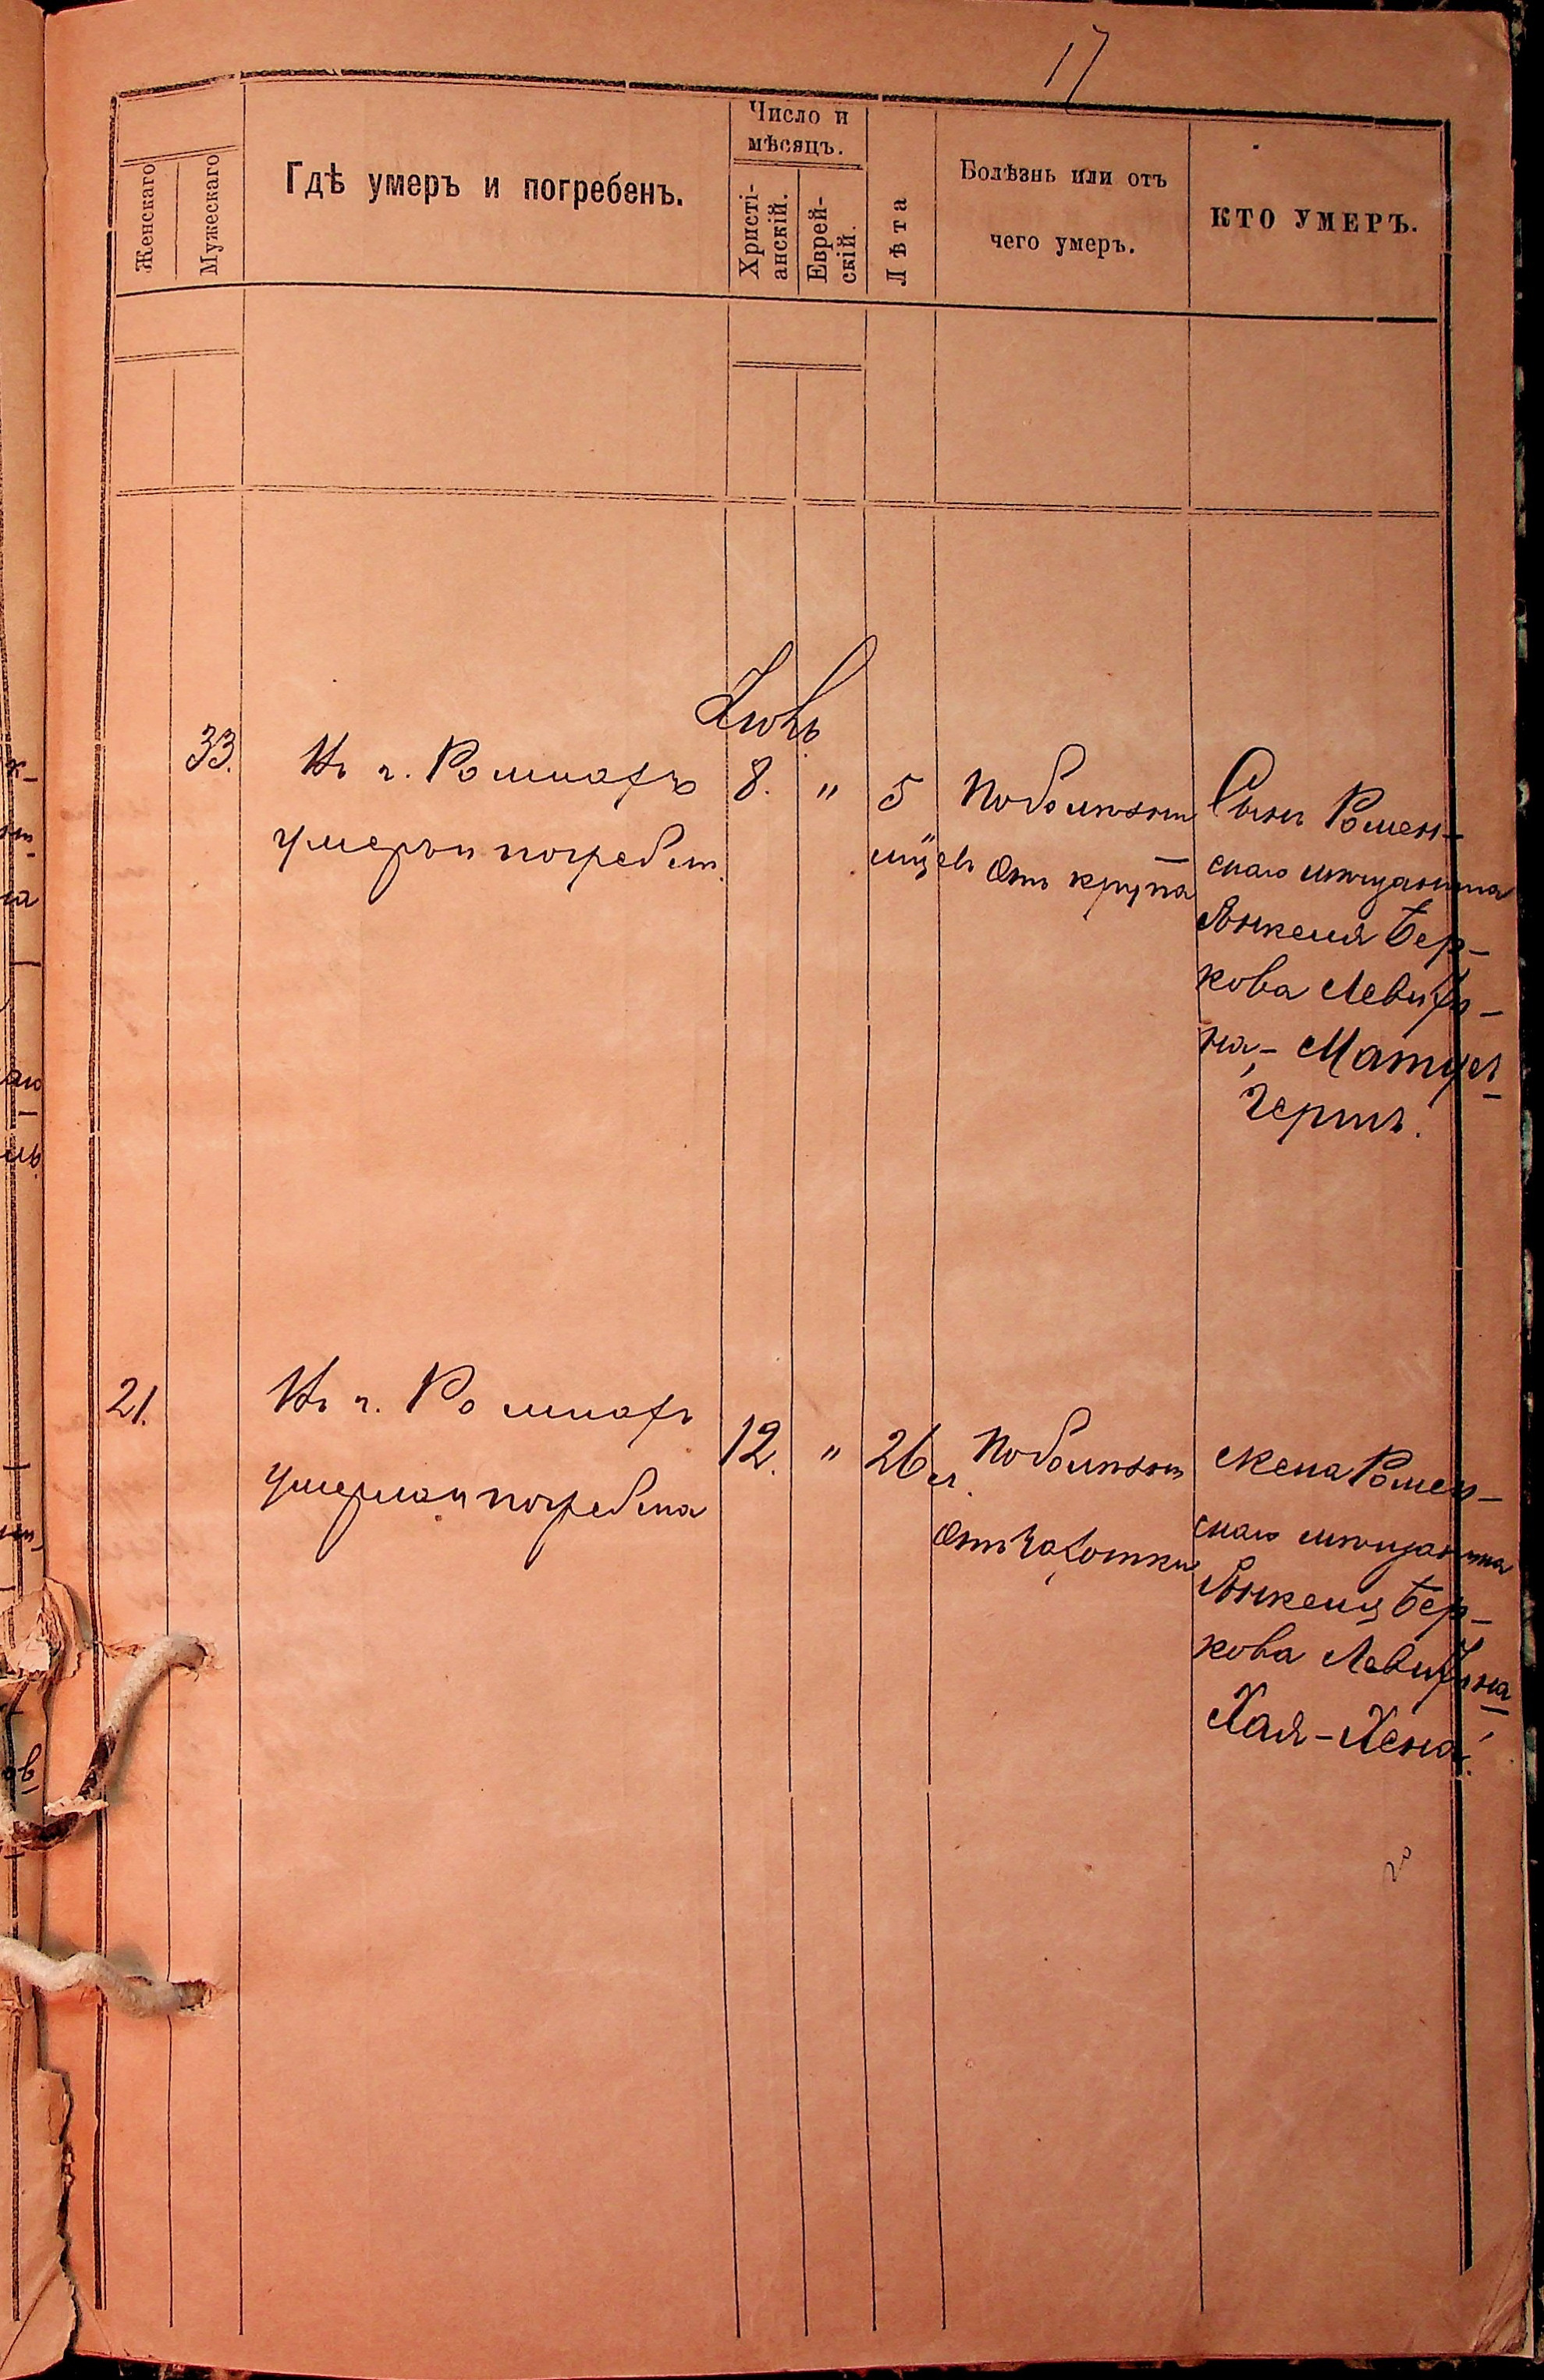 17
Женскаго
Мужескаго
Гдѣ умеръ и погребенъ.
Число и
мѣсяцъ.
Христі-
анскій.
Еврей-
скій.
Лѣта
Болѣзнь или отъ
чего умеръ.
КТО УМЕРЪ.
33.
Въ г. Ромнахъ
умеръ и погребенъ.
8.
"
5
мцевъ
По болѣзни
отъ крупа
Сынъ Ромен-
скаго мѣщанина
Янкеля Бер-
кова Левити-
на, – Матус
Герцъ.
21.
Въ г. Ромнахъ
умерла и погребена
12.
"
26 л.
По болѣзни
отъ чахотки
Жена Ромен-
скаго мѣщанина
Янкеля Бер-
кова Левитина
Хая-Хена.